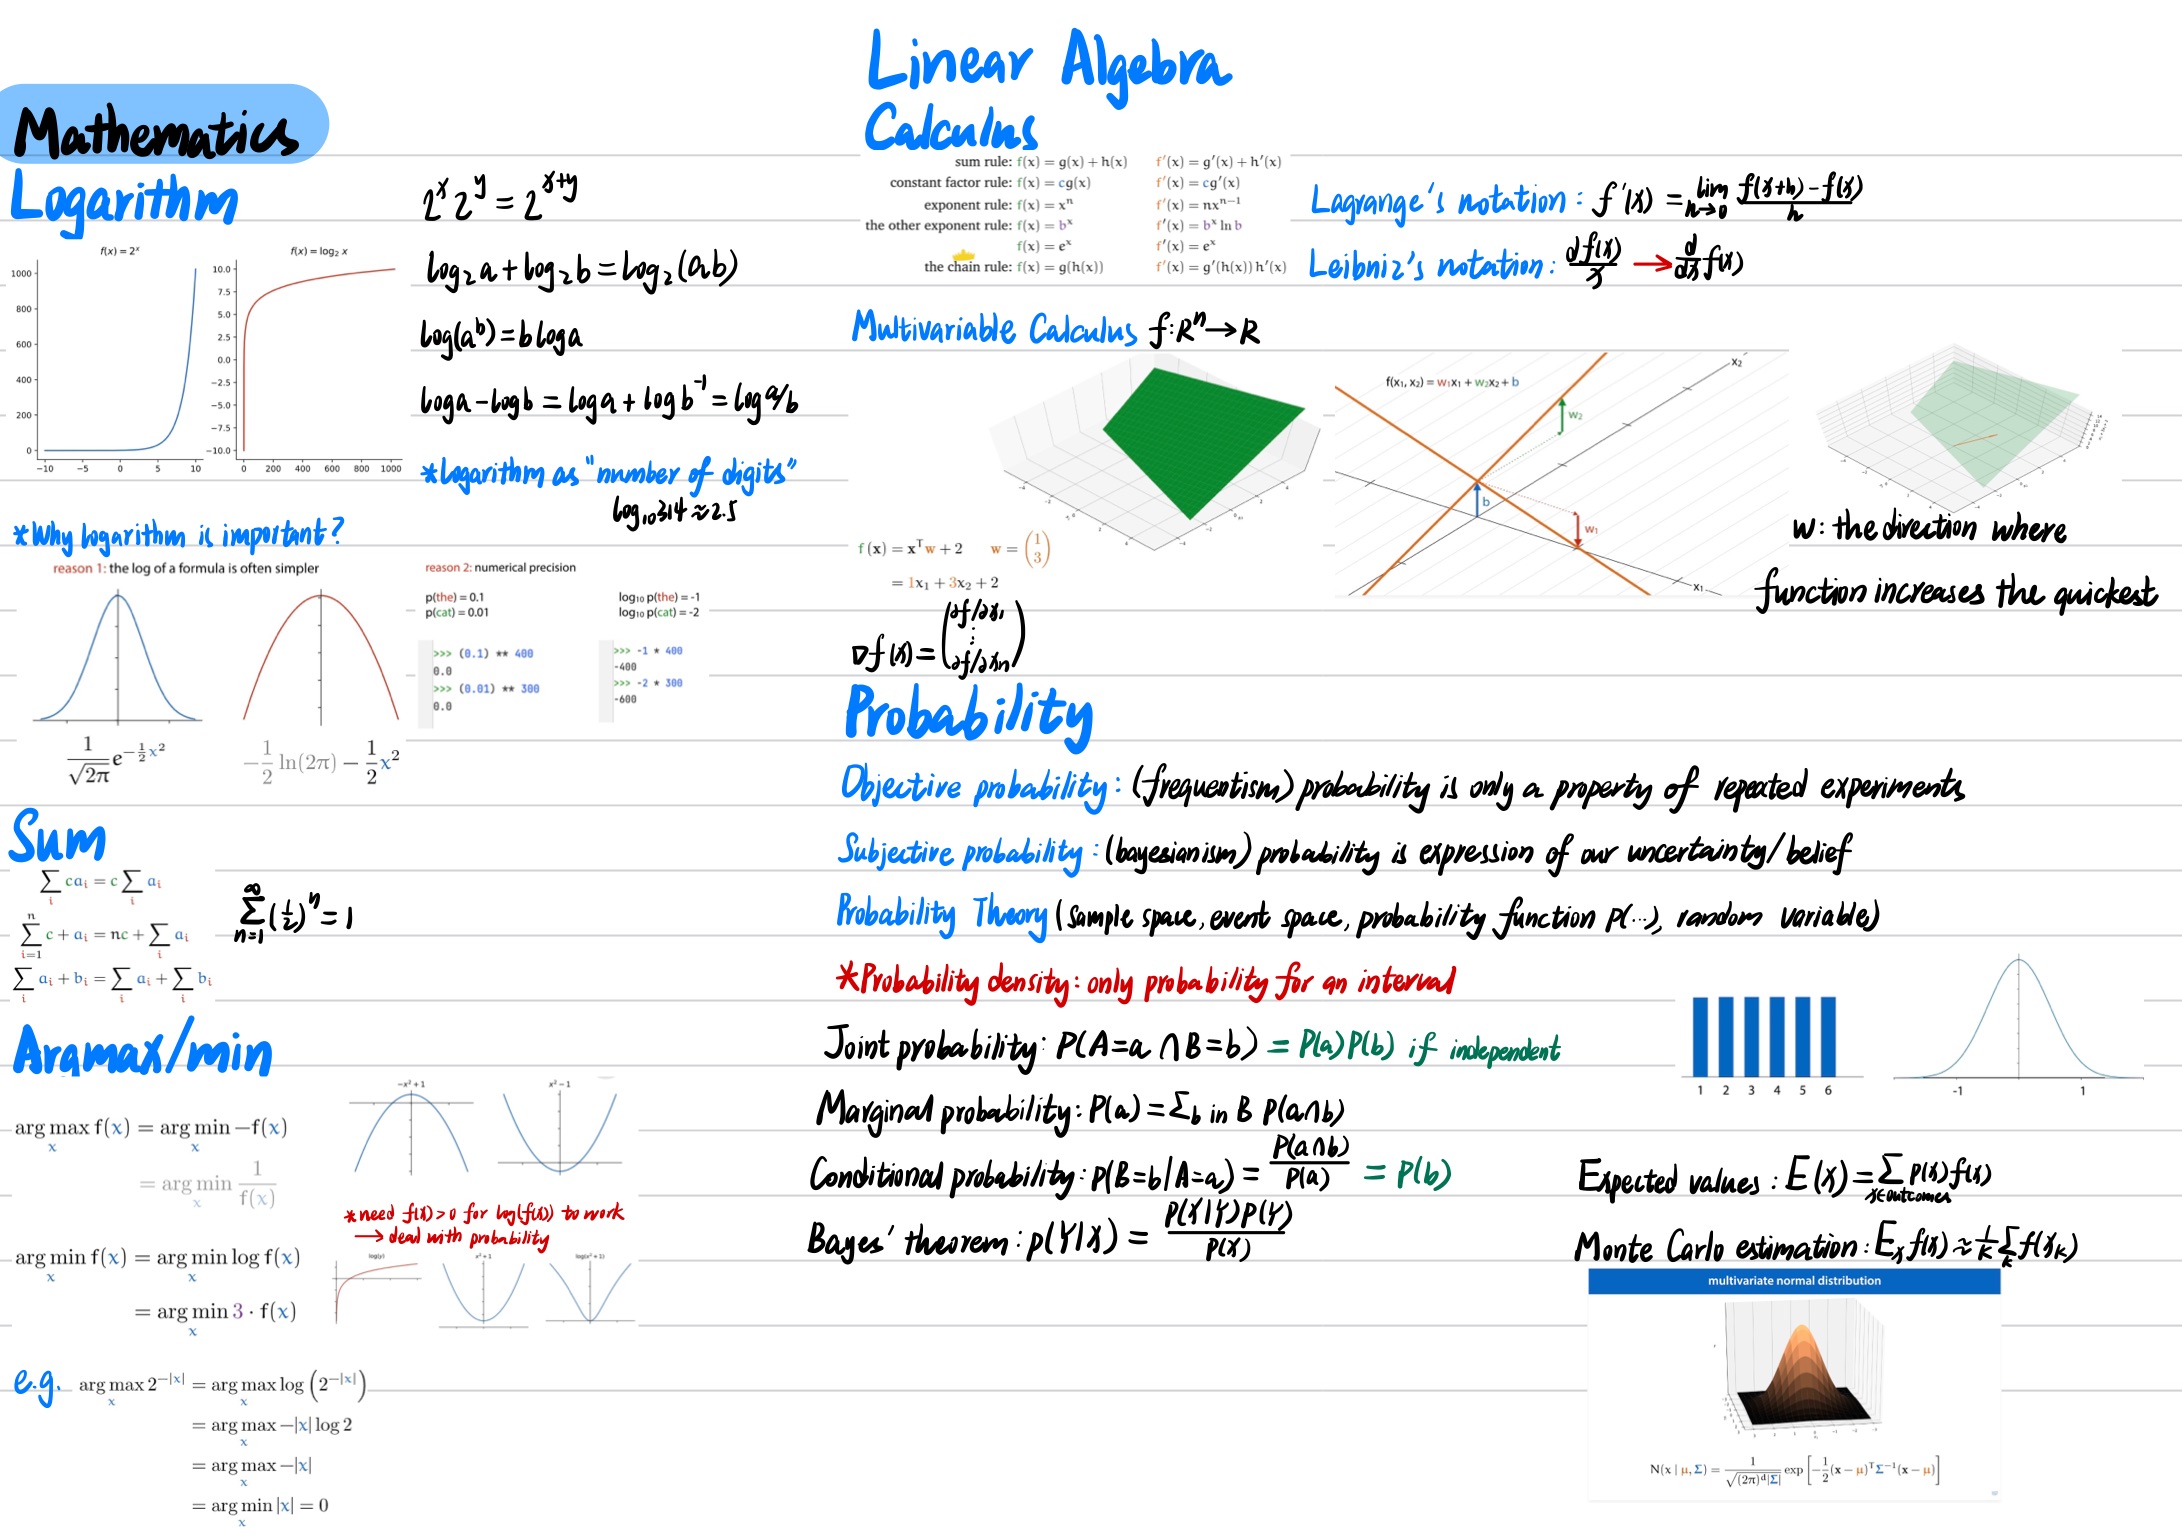 Mathematics
Logarithm
f(x) = 2ˣ
f(x) = log₂ x
1000
800
600
400
200
0
−10 −5 0 5 10
10.0
7.5
5.0
2.5
0.0
−2.5
−5.0
−7.5
−10.0
0 200 400 600 800 1000
2ˣ2ʸ = 2ˣ⁺ʸ
log₂a + log₂b = log₂(ab)
log(aᵇ) = b log a
log a − log b = log a + log b⁻¹ = log a/b
*Logarithm as "number of digits"
log₁₀314 ≈ 2.5
*Why logarithm is important?
reason 1: the log of a formula is often simpler
1/√2π e^(−½x²)
−1/2 ln(2π) − 1/2 x²
reason 2: numerical precision
p(the) = 0.1
p(cat) = 0.01
log₁₀ p(the) = -1
log₁₀ p(cat) = -2
>>> (0.1) ** 400
0.0
>>> (0.01) ** 300
0.0
>>> -1 * 400
-400
>>> -2 * 300
-600
Sum
∑ᵢ caᵢ = c ∑ᵢ aᵢ
∑ᵢ₌₁ⁿ c + aᵢ = nc + ∑ᵢ aᵢ
∑ᵢ aᵢ + bᵢ = ∑ᵢ aᵢ + ∑ᵢ bᵢ
∑ₙ₌₁^∞ (1/2)ⁿ = 1
Argmax/min
arg maxₓ f(x) = arg minₓ −f(x)
= arg minₓ 1/f(x)
−x² + 1
x² − 1
*need f(x)>0 for log(f(x)) to work
→ deal with probability
arg minₓ f(x) = arg minₓ log f(x)
= arg minₓ 3 · f(x)
log(y)
x² + 1
log(x² + 1)
e.g. arg maxₓ 2^(−|x|) = arg maxₓ log (2^(−|x|))
= arg maxₓ −|x| log 2
= arg maxₓ −|x|
= arg minₓ |x| = 0
Linear Algebra
Calculus
sum rule: f(x) = g(x) + h(x) f′(x) = g′(x) + h′(x)
constant factor rule: f(x) = cg(x) f′(x) = cg′(x)
exponent rule: f(x) = xⁿ f′(x) = nxⁿ⁻¹
the other exponent rule: f(x) = bˣ f′(x) = bˣ ln b
f(x) = eˣ f′(x) = eˣ
the chain rule: f(x) = g(h(x)) f′(x) = g′(h(x)) h′(x)
Lagrange's notation: f′(x) = lim h→0 f(x+h)−f(x)/h
Leibniz's notation: df(x)/x → d/dx f(x)
Multivariable Calculus f:Rⁿ→R
f(x) = xᵀw + 2 w = (1 3)
= 1x₁ + 3x₂ + 2
f(x₁, x₂) = w₁x₁ + w₂x₂ + b
x₂
w₂
b
w₁
x₁
w: the direction where
function increases the quickest
∇f(x) = (∂f/∂x₁ ⋮ ∂f/∂xn)
Probability
Objective probability: (frequentism) probability is only a property of repeated experiments
Subjective probability: (bayesianism) probability is expression of our uncertainty/belief
Probability Theory (sample space, event space, probability function p(...), random variable)
*Probability density: only probability for an interval
Joint probability: P(A=a ∩ B=b) = P(a)P(b) if independent
1 2 3 4 5 6
-1 1
Marginal probability: P(a) = Σb in B P(a∩b)
Conditional probability: p(B=b|A=a) = P(a∩b)/P(a) = P(b)
Bayes' theorem: p(Y|X) = P(X|Y)P(Y)/P(X)
Expected values: E(x) = Σ x∈outcomes p(x)f(x)
Monte Carlo estimation: Eₓf(x) ≈ 1/k Σₖ f(xₖ)
multivariate normal distribution
N(x | μ, Σ) = 1/√((2π)ᵈ|Σ|) exp [−1/2 (x − μ)ᵀΣ⁻¹(x − μ)]